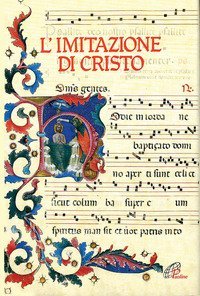 L'IMITAZIONE
DI CRISTO
omnes gentes.
odie in iorda ne
baptizato domi
no aper ti sunt celi et
sicut colum ba super e um
spiritus man sit et vox patris into
Paoline